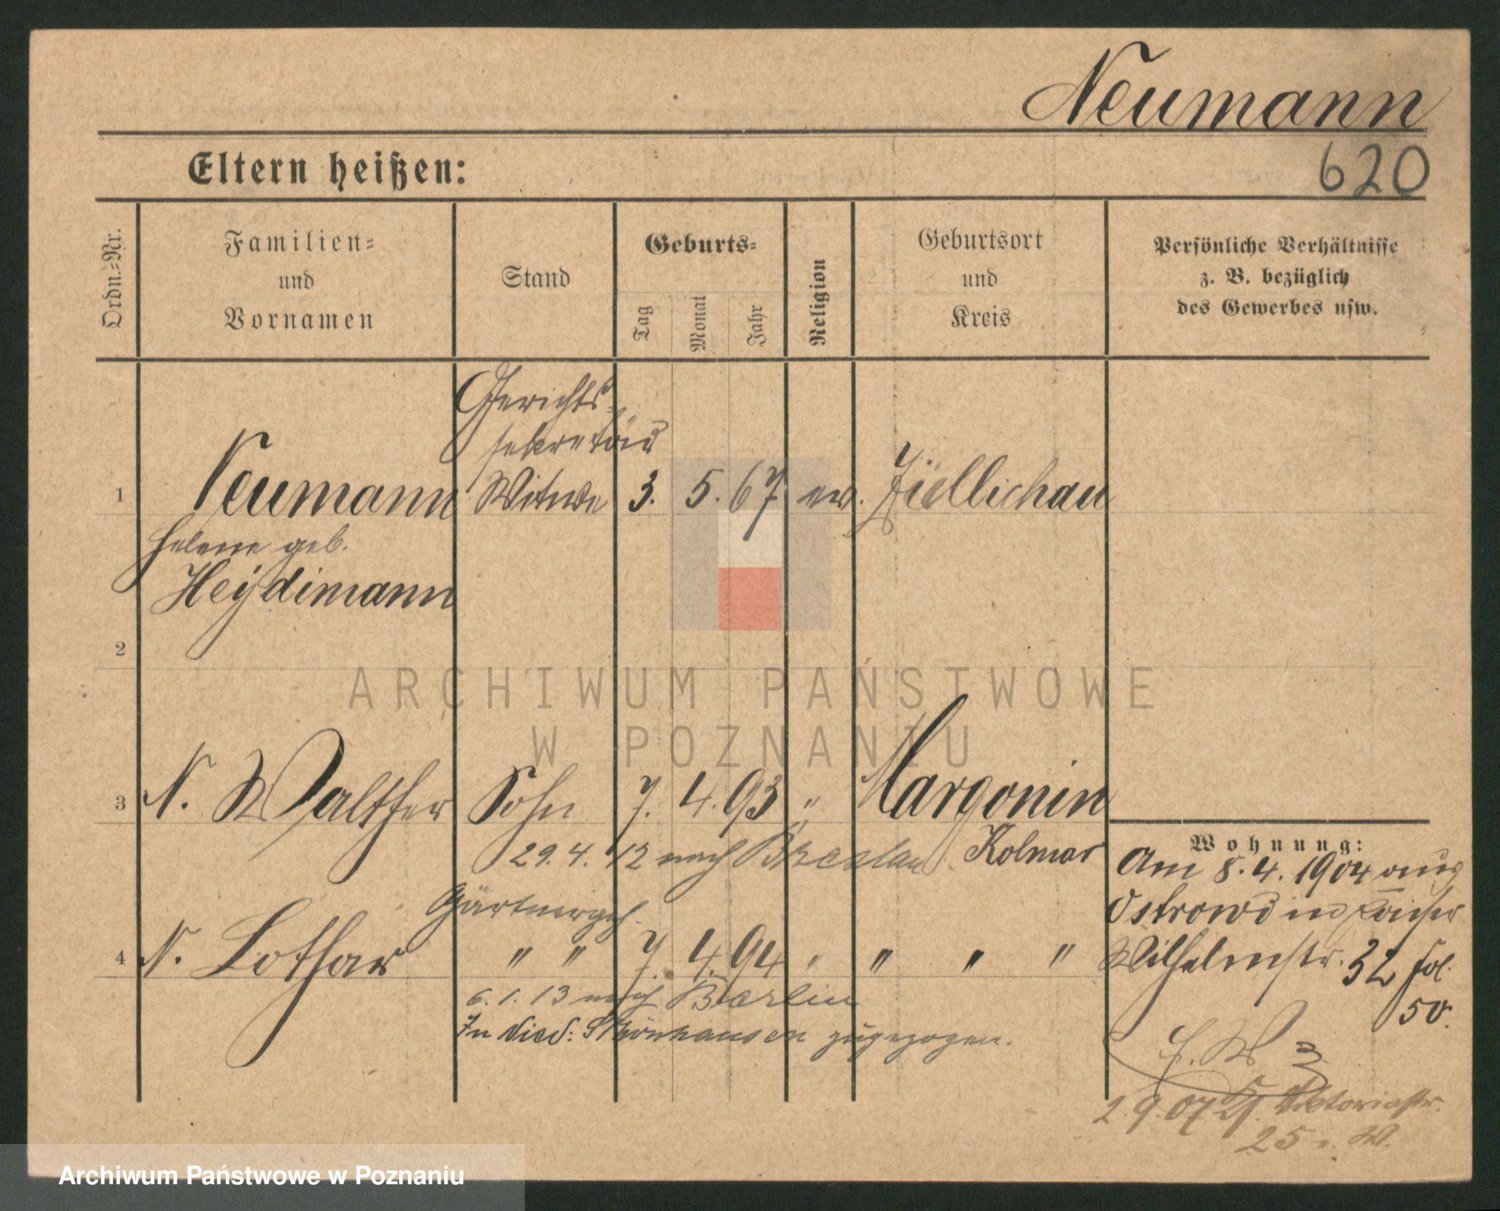 Neumann
620
Eltern heißen:
Ordn.=Nr.
Familien=
und
Vornamen
Stand
Geburts=
Tag
Monat
Jahr
Religion
Geburtsort
und
Kreis
Persönliche Verhältnisse
z. B. bezüglich
des Gewerbes usw.
Gerichts-
sekretär
1 Neumann Witwe 3. 5. 67 ev. Züllichau
Helene geb.
Heydimann
2
ARCHIWUM PAŃSTWOWE
W POZNANIU
3 N. Walther Sohn 7. 4. 93 " Margonin
29.4.12 nach Breslau Kolmar
Wohnung:
Am 8.4.1904 aus
Ostrowo in Kaiser
Wilhelmstr. 32 fol.
50.
Gärtnergeh.
4 N. Lothar " " 7. 4. 94 " " " "
6.1.13 nach Berlin
In Nied: Schönhausen zugezogen.
2.9.07 Viktoriastr.
25 W.
Archiwum Państwowe w Poznaniu